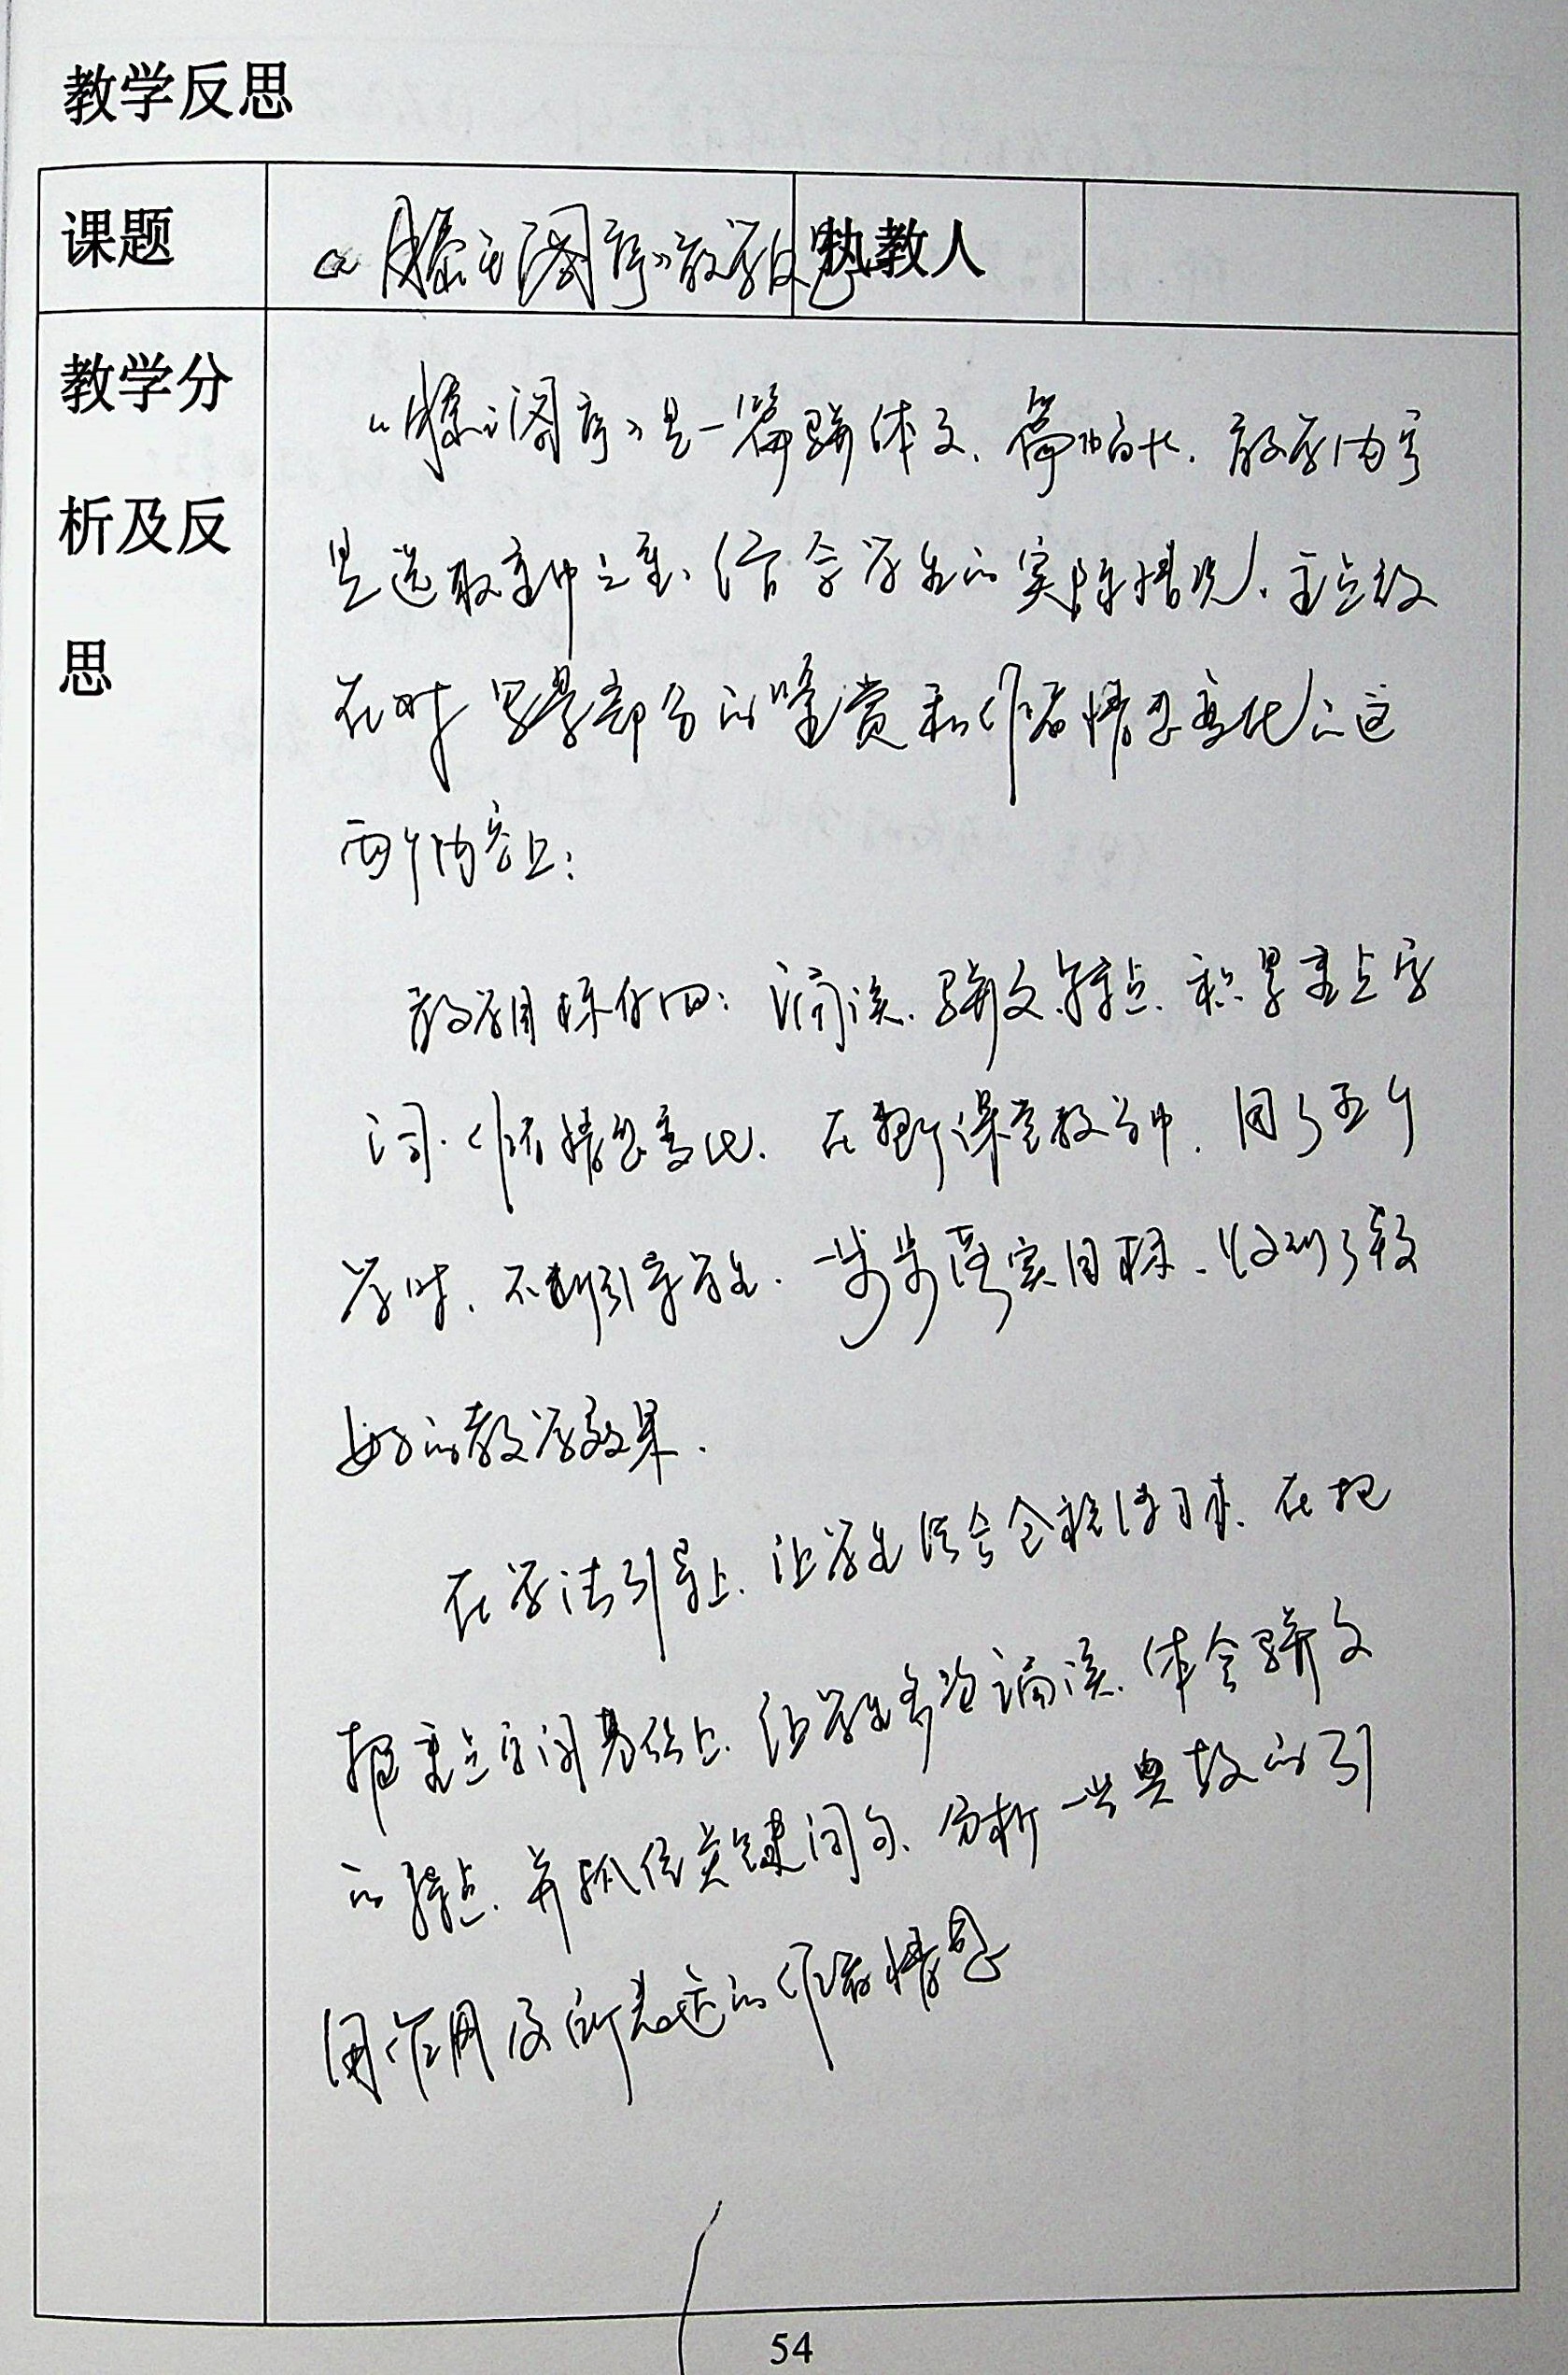 教学反思
课题 《滕王阁序》教学反思 执教人
教学分析及反思
《滕王阁序》是一篇骈体文、篇幅长、教学内容
是选取重中之重、结合学生的实际情况、重点放
在对写景部分的鉴赏和作者情思变化的这
两个内容上:
教学目标有四:诵读、骈文特点、积累重点字
词、作者情思变化. 在整个课堂教学中、用了五个
学时、不断引导学生、一步步落实目标、收到了较
好的教学效果.
在学法引导上、让学生结合全程练习本、在把
握重点字词基础上、让学生多次诵读、体会骈文
的特点、并抓住关键词句、分析一些典故的引
用作用及所表达的作者情思
54